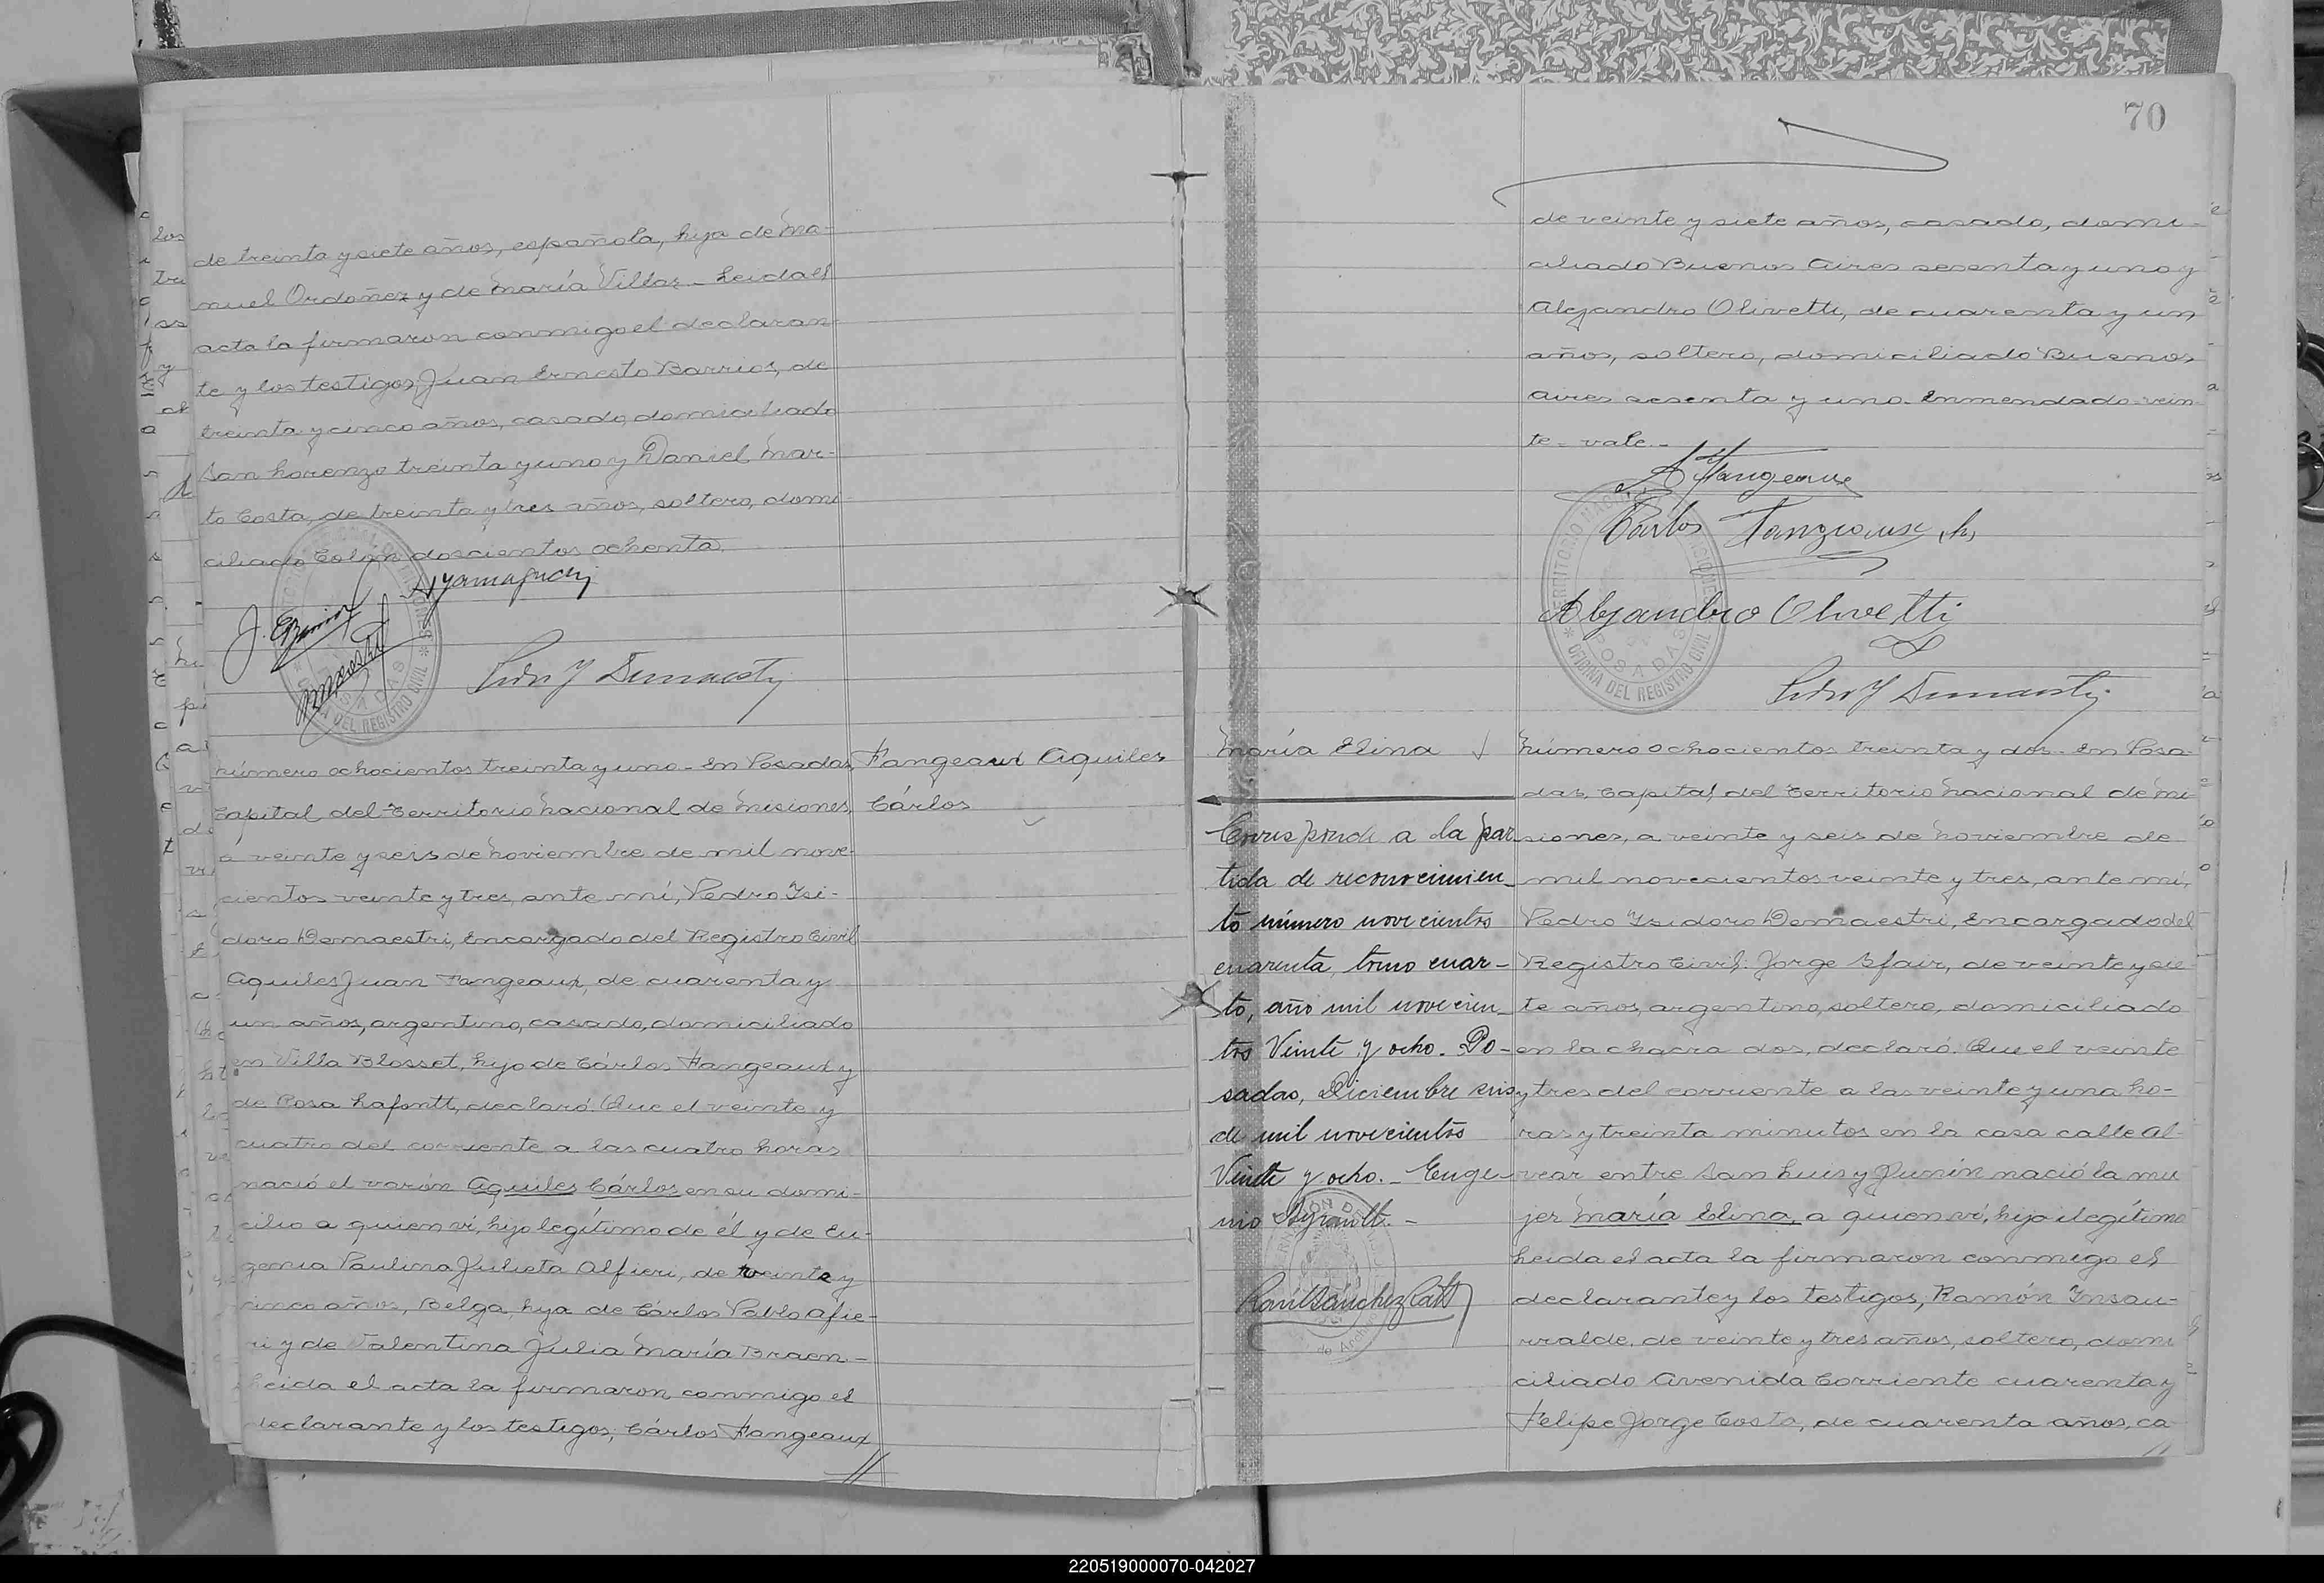 de treinta y siete años, española, hija de Ma-
nuel Ordoñez y de María Villar - Leida el
acta la firmaron conmigo el declaran-
te y los testigos, Juan Ernesto Barrios, de
treinta y cinco años, casado, domiciliado
San Lorenzo treinta y uno y Daniel Mar-
to Costa, de treinta y tres años, soltero, domi-
ciliado Colón doscientos ochenta.
Número ochocientos treinta y uno - En Posadas,
Capital del Territorio Nacional de Misiones,
á veinte y seis de Noviembre de mil nove-
cientos veinte y tres, ante mí, Pedro Isi-
doro Demaestri, Encargado del Registro Civil
Aquiles Juan Fangeaux, de cuarenta y
un años, argentino, casado, domiciliado
en Villa Blosset, hijo de Cárlos Fangeaux y
de Rosa Lafontt, declaró: Que el veinte y
cuatro del corriente a las cuatro horas
nació el varón Aquiles Cárlos en su domi-
cilio a quien ví, hijo legítimo de él y de Eu-
genia Paulina Julieta Alfieri, de veinte y
cinco años, Belga, hija de Cárlos Pablo Afie-
ri y de Valentina Julia María Braem -
Leida el acta la firmaron conmigo el
declarante y los testigos, Cárlos Fangeaux
Fangeaux Aquiles
Cárlos
70
de veinte y siete años, casado, domi-
ciliado Buenos Aires sesenta y uno y
Alejandro Olivetti, de cuarenta y un
años, soltero, domiciliado Buenos
Aires sesenta y uno. Enmendado - vein
te - vale. -
A Fangeaux
Carlos Fangeaux (h)
Alejandro Olivetti
TERRITORIO NACIONAL DE MISIONES
POSADAS
OFICINA DEL REGISTRO CIVIL
María Elina
Corresponde a la par
tida de reconocimien-
to número novecientos
cuarenta, tomo cuar-
to, año mil novecien-
tos Veinte y ocho. Po-
sadas, Diciembre seis
de mil novecientos
Veinte y ocho. - Euge-
nio Ayrault. -
Número ochocientos treinta y dos - En Posa-
das, Capital del Territorio Nacional de Mi-
siones, a veinte y seis de Noviembre de
mil novecientos veinte y tres, ante mí,
Pedro Isidoro Demaestri, Encargado del
Registro Civil: Jorge Sfair, de veinte y sie-
te años, argentino, soltero, domiciliado
en la chacra dos, declaró: Que el veinte
y tres del corriente a las veinte y una ho-
ras y treinta minutos en la casa calle Al-
vear entre San Luis y Junín nació la mu
jer María Elina, a quien ví, hija ilegítima
Leida el acta la firmaron conmigo el
declarante y los testigos, Ramón Insau-
rralde, de veinte y tres años, soltero, domi
ciliado Avenida Corriente cuarenta y
Felipe Jorge Costa, de cuarenta años, ca
220519000070-042027